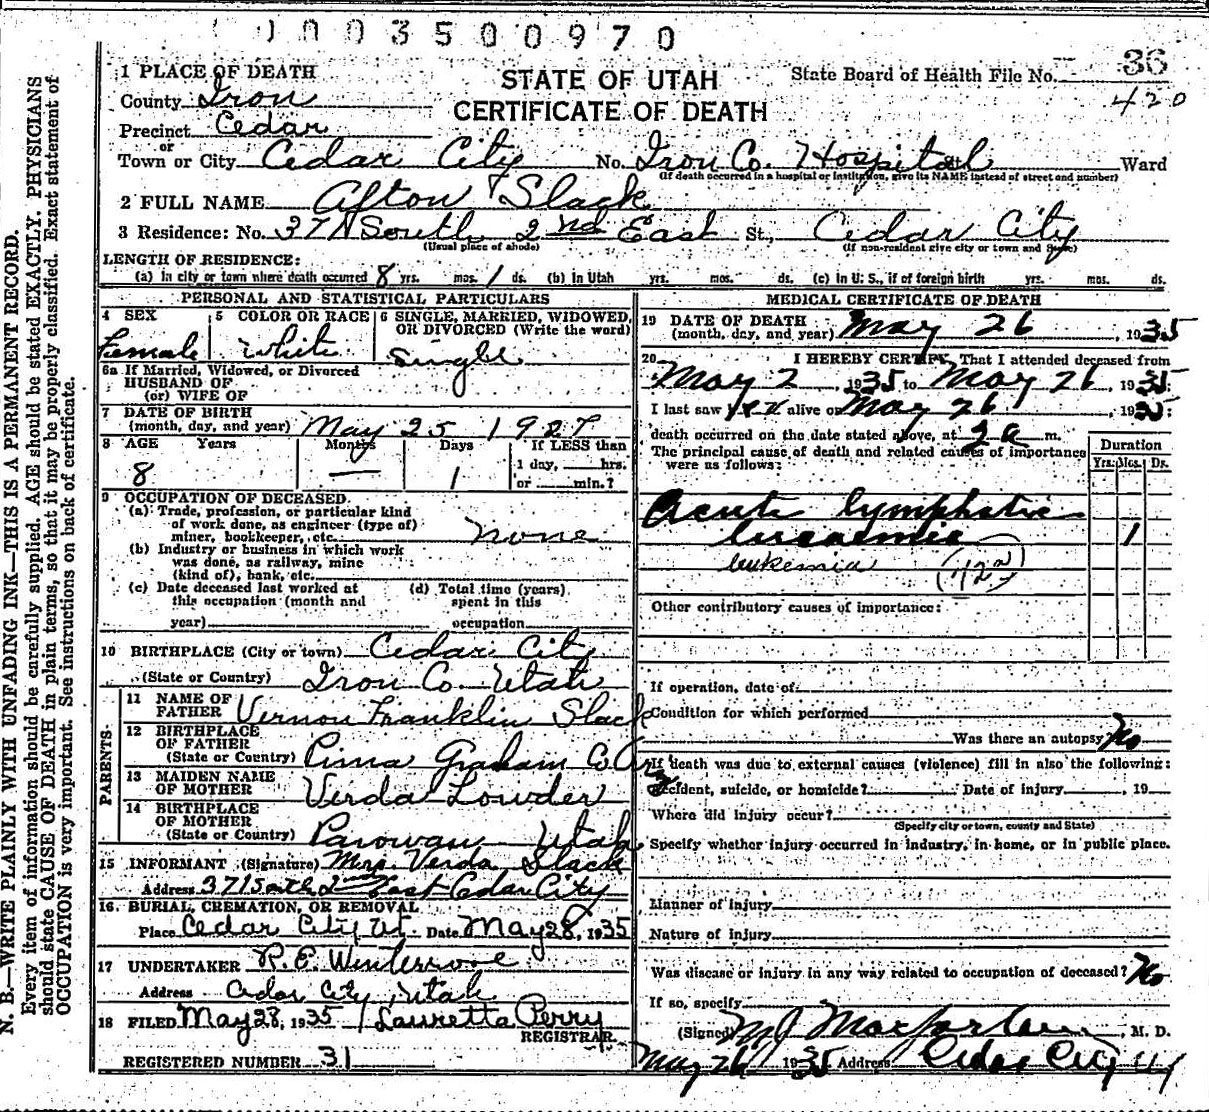 1003500970
STATE OF UTAH
CERTIFICATE OF DEATH
State Board of Health File No. 36
420
1 PLACE OF DEATH
County Iron
Precinct Cedar
or
Town or City Cedar City No. Iron Co. Hospital St. Ward
(If death occurred in a hospital or institution, give its NAME instead of street and number)
2 FULL NAME Afton Slack
3 Residence: No. 371 South 2nd East St., Cedar City
(Usual place of abode) (If non-resident give city or town and State)
LENGTH OF RESIDENCE:
(a) In city or town where death occurred 8 yrs. mos. 1 ds. (b) In Utah yrs. mos. ds. (c) in U. S., if of foreign birth yrs. mos. ds.
PERSONAL AND STATISTICAL PARTICULARS
4 SEX Female
5 COLOR OR RACE White
6 SINGLE, MARRIED, WIDOWED, OR DIVORCED (Write the word) Single
6a If Married, Widowed, or Divorced
HUSBAND OF
(or) WIFE OF
7 DATE OF BIRTH
(month, day, and year) May 25 1927
8 AGE Years Months Days If LESS than
8 — 1 1 day, hrs.
or min.?
9 OCCUPATION OF DECEASED.
(a) Trade, profession, or particular kind
of work done, as engineer (type of)
miner, bookkeeper, etc. none
(b) Industry or business in which work
was done, as railway, mine
(kind of), bank, etc.
(c) Date deceased last worked at
this occupation (month and
year)
(d) Total time (years)
spent in this
occupation
10 BIRTHPLACE (City or town) Cedar City
(State or Country) Iron Co. Utah
PARENTS
11 NAME OF
FATHER Vernon Franklin Slack
12 BIRTHPLACE
OF FATHER
(State or Country) Pima Graham Co Ariz
13 MAIDEN NAME
OF MOTHER Verda Lowder
14 BIRTHPLACE
OF MOTHER
(State or Country) Parowan Utah
15 INFORMANT (Signature) Mrs. Verda Slack
Address 371 South 2nd East Cedar City
16. BURIAL, CREMATION, OR REMOVAL
Place Cedar City Ut. Date May 28, 1935
17 UNDERTAKER
Address Cedar City, Utah
18 FILED May 28, 1935 Lauretta Perry
REGISTRAR.
REGISTERED NUMBER 31
MEDICAL CERTIFICATE OF DEATH
19 DATE OF DEATH
(month, day, and year) May 26, 1935
20 I HEREBY CERTIFY, That I attended deceased from
May 2, 1935 to May 26, 1935
I last saw her alive on May 26, 1935;
death occurred on the date stated above, at 2 a m.
The principal cause of death and related causes of importance
were as follows:
Duration
Yrs. Mos. Ds.
Acute lymphatic
leucaemia 1
leukemia
Other contributory causes of importance:
If operation, date of
Condition for which performed
Was there an autopsy No
If death was due to external causes (violence) fill in also the following:
Accident, suicide, or homicide? Date of injury, 19
Where did injury occur?
(Specify city or town, county and State)
Specify whether injury occurred in industry, in home, or in public place.
Manner of injury
Nature of injury
Was disease or injury in any way related to occupation of deceased? No
If so, specify
(Signed) M J Macfarlane, M. D.
May 26 1935 Address Cedar City Ut
N. B.—WRITE PLAINLY WITH UNFADING INK—THIS IS A PERMANENT RECORD.
Every item of information should be carefully supplied. AGE should be stated EXACTLY. PHYSICIANS
should state CAUSE OF DEATH in plain terms, so that it may be properly classified. Exact statement of
OCCUPATION is very important. See instructions on back of certificate.